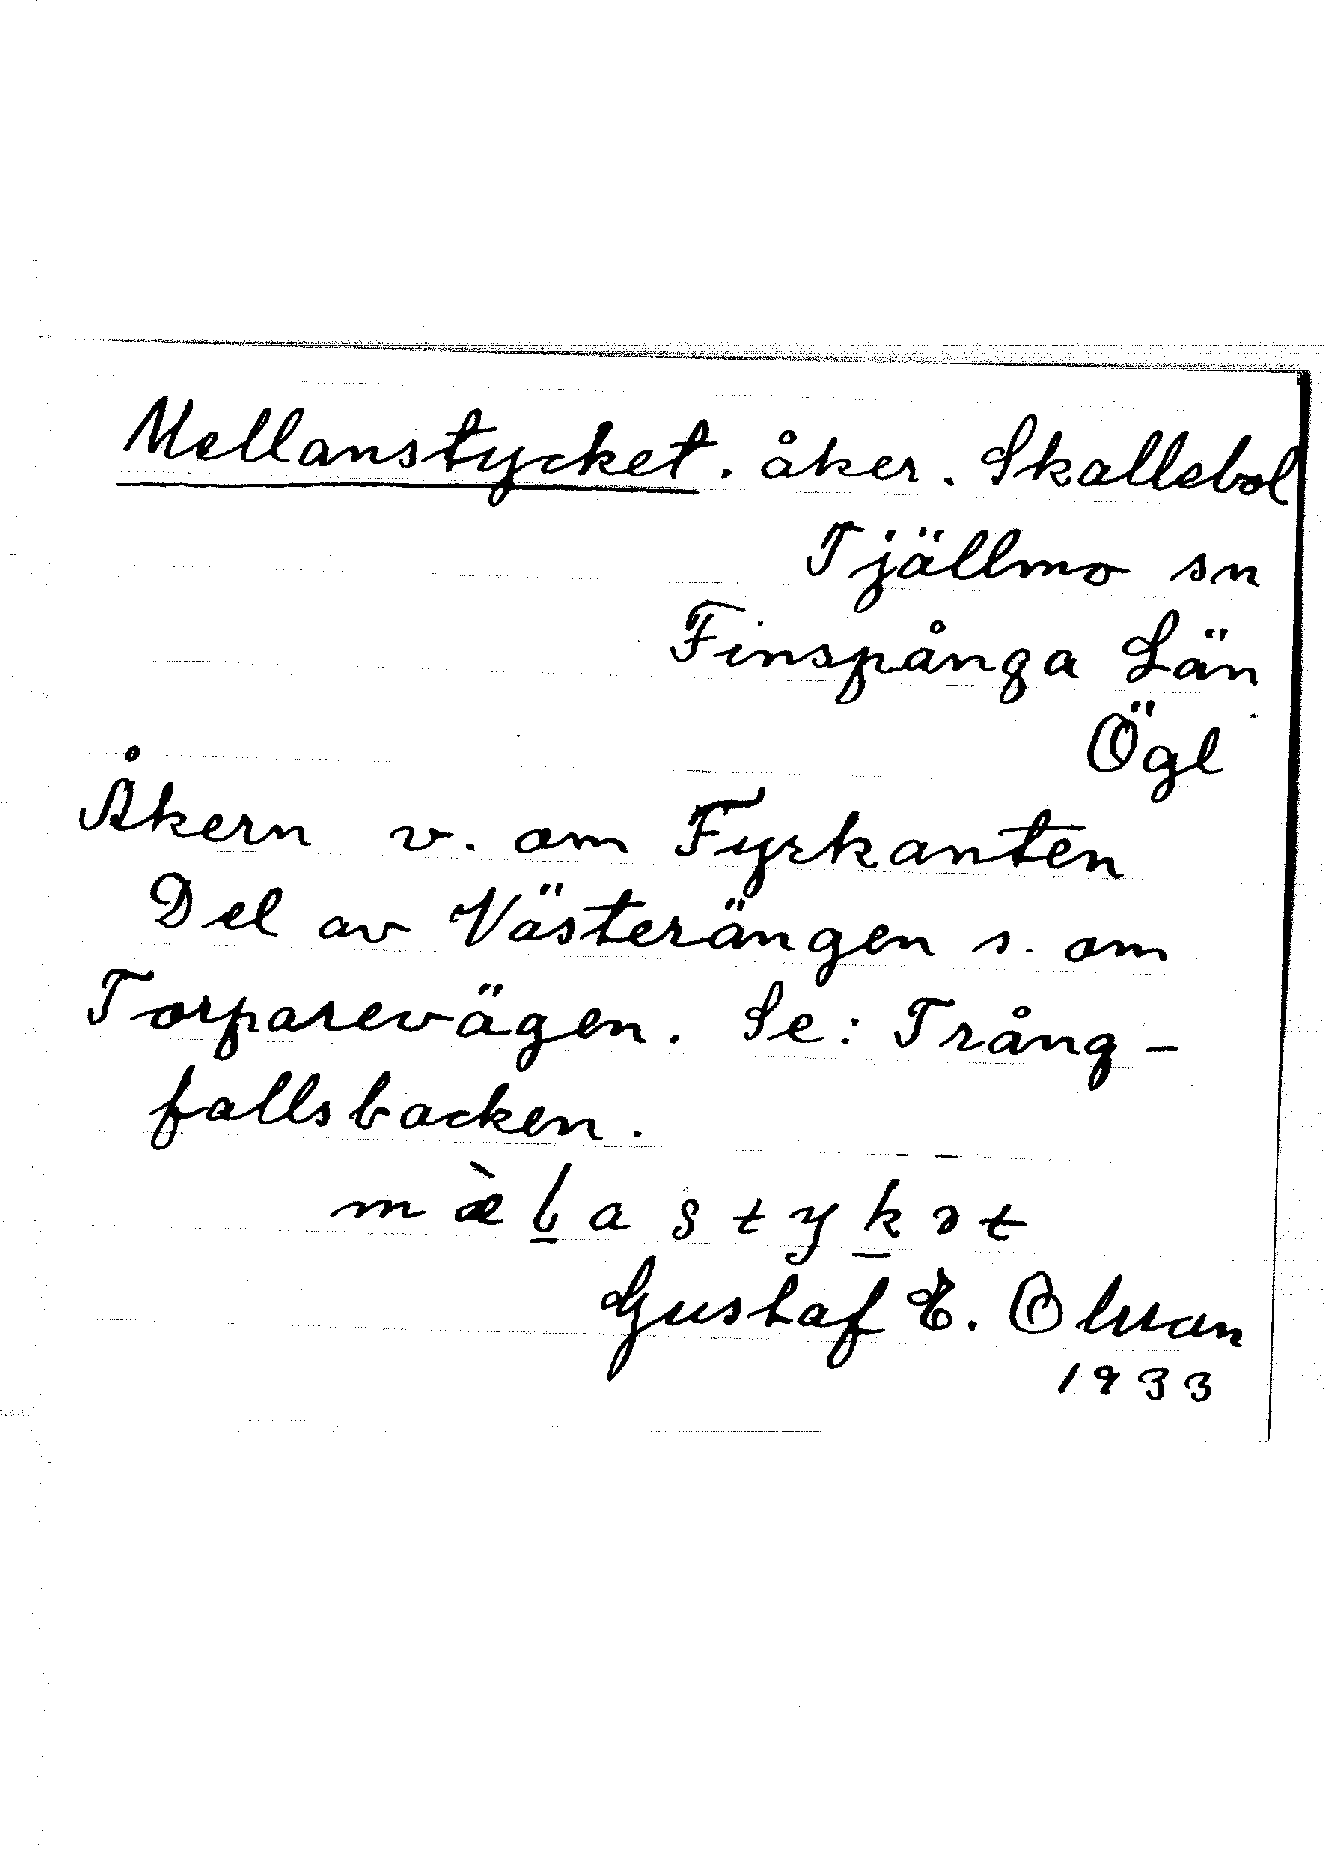 Mellanstycket. åker. Skallebol
Tjällmo sn
Finspånga Län
Ögl
Åkern v. om Fyrkanten
Del av Västerängen s. om
Torparevägen. Se: Trång-
fallsbacken.
mæ̀l̲astyk̲ət
Gustaf E. Olsson
1933